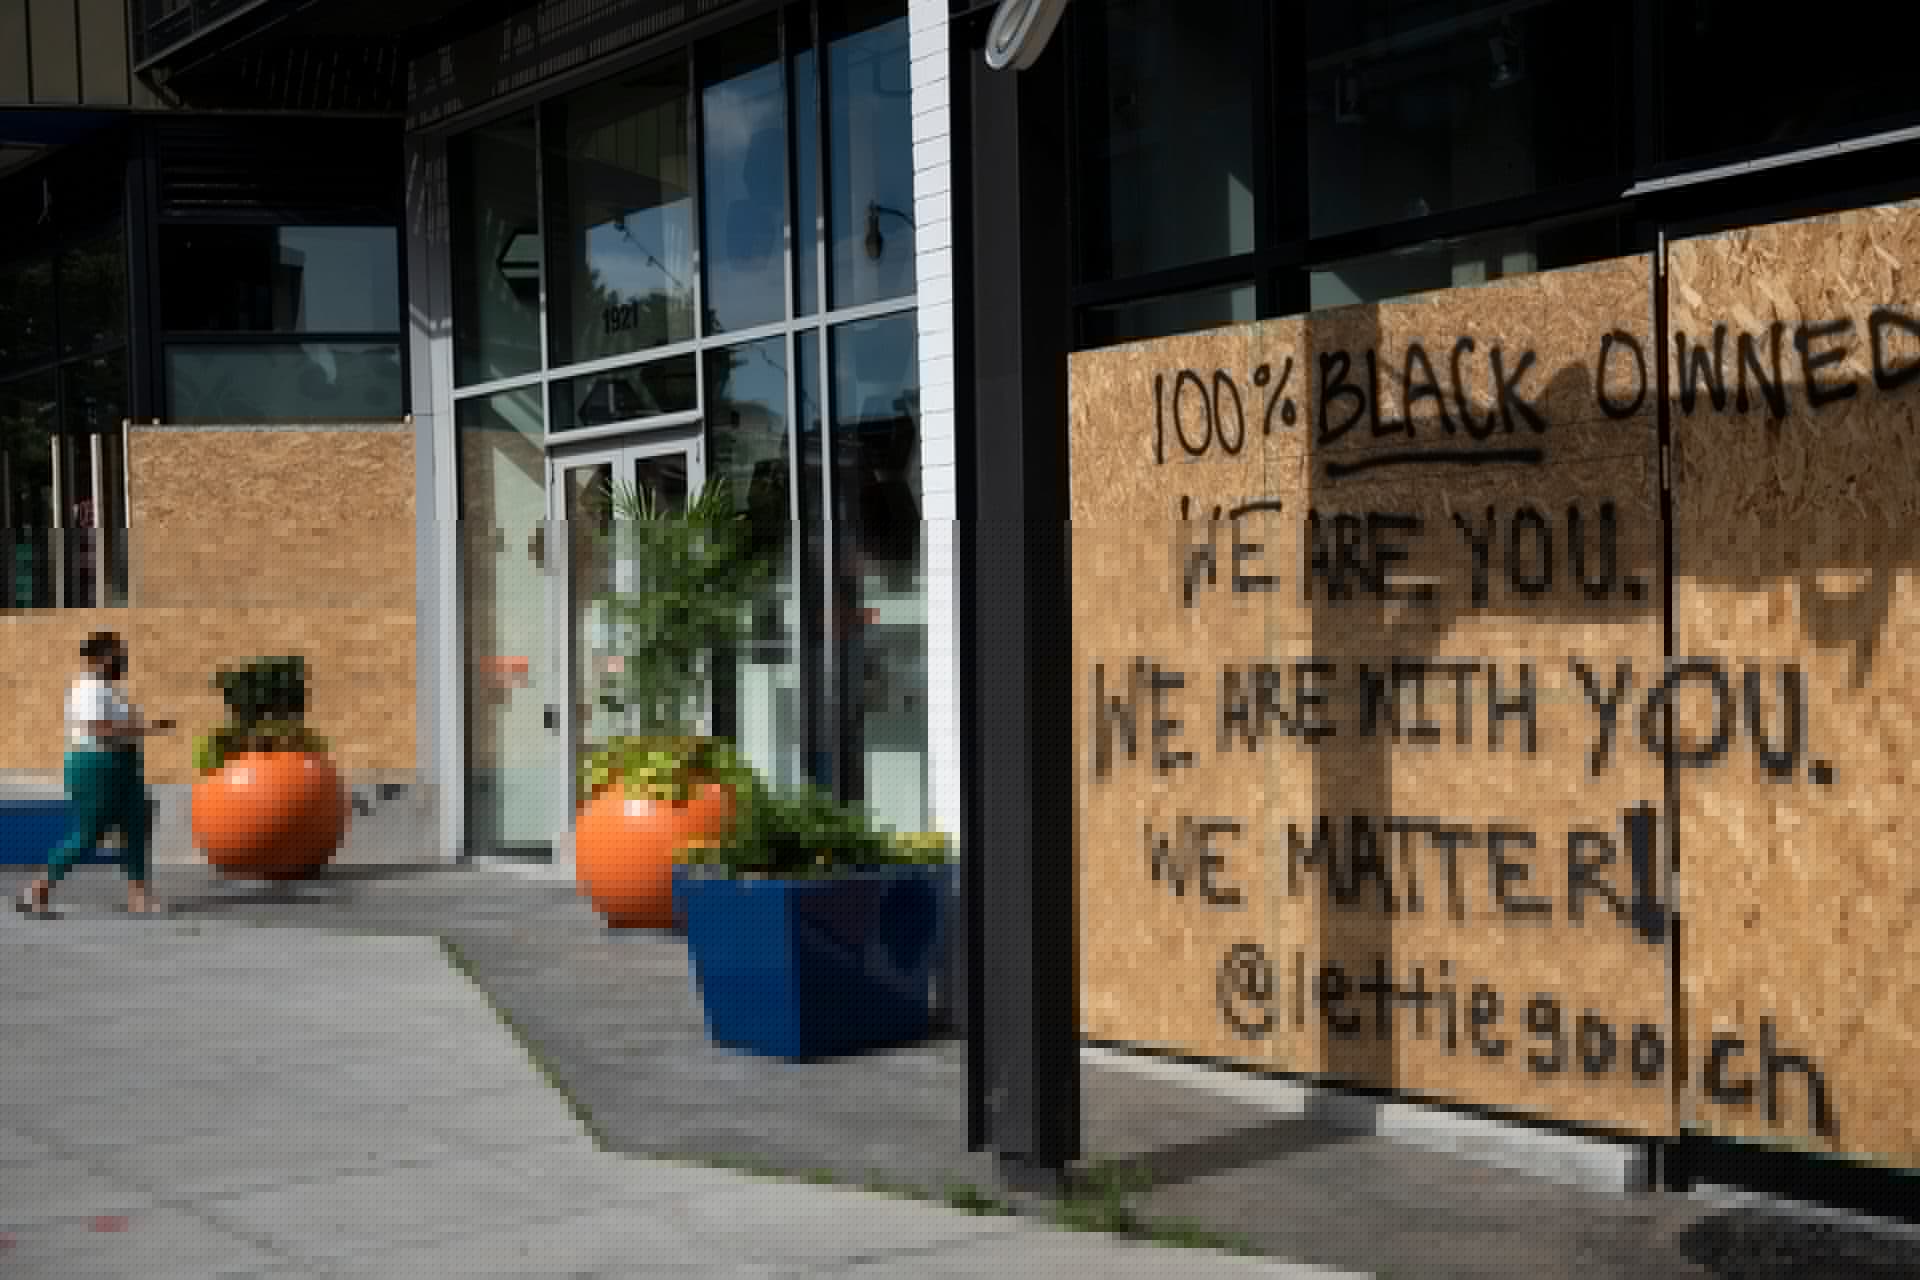 1921
100% BLACK OWNED
WE ARE YOU.
WE ARE WITH YOU.
WE MATTER!
@lettiegooch